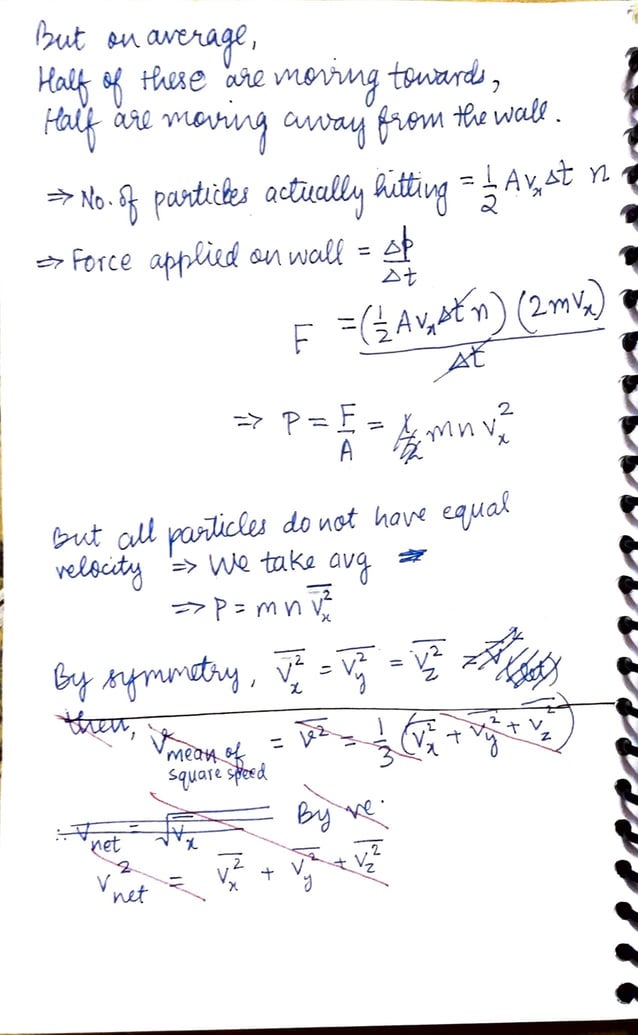 But on average,
Half of these are moving towards,
Half are moving away from the wall.
⇒ No. of particles actually hitting = 1/2 A vₓ Δt n
⇒ Force applied on wall = Δp/Δt
F = (1/2 A vₓ Δt n) (2mvₓ) / Δt
⇒ P = F/A = m n vₓ²
But all particles do not have equal
velocity ⇒ We take avg
⇒ P = m n v̅ₓ²
By symmetry, v̅ₓ² = v̅_y² = v̅_z²
then, v² mean of square speed = v̅² = 1/3 (v̅ₓ² + v̅_y² + v̅_z²)
∴ v_net = √vₓ By ve.
v²_net = v̅ₓ² + v̅_y² + v̅_z²